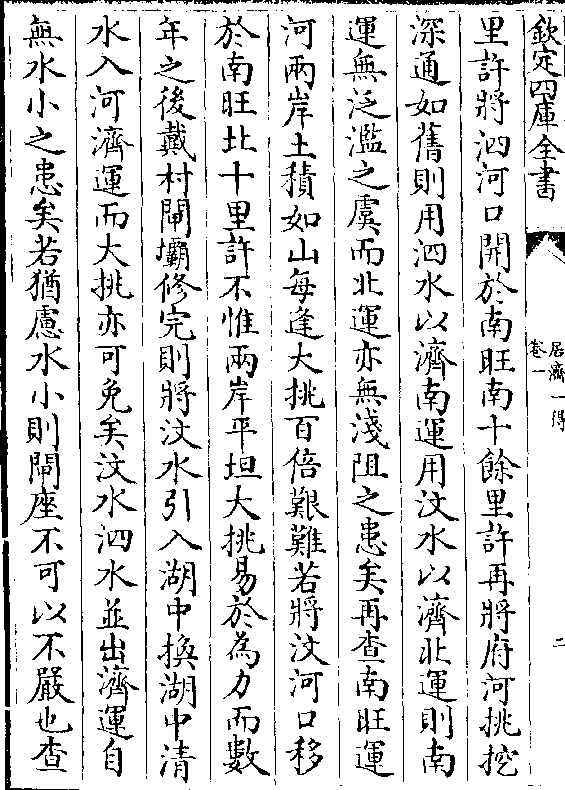 欽定四庫全書
居濟一得
卷一
二
里許將泗河口開於南旺南十餘里許再將府河挑挖
深通如舊則用泗水以濟南運用汶水以濟北運則南
運無泛濫之虞而北運亦無淺阻之患矣再查南旺運
河兩岸土積如山每逢大挑百倍艱難若將汶河口移
於南旺北十里許不惟兩岸平坦大挑易於為力而數
年之後戴村閘壩修完則將汶水引入湖中換湖中清
水入河濟運而大挑亦可免矣汶水泗水並出濟運自
無水小之患矣若猶慮水小則閘座不可以不嚴也查